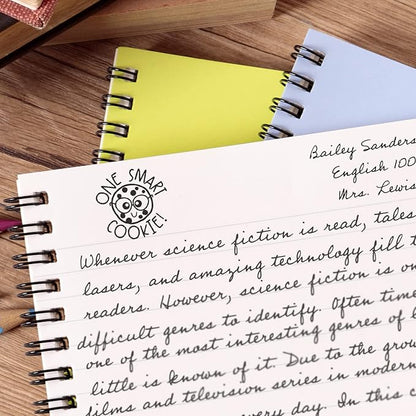 ONE SMART
COOKIE!
Bailey Sanders
English 100
Mrs. Lewis
Whenever science fiction is read, tales
lasers, and amazing technology fill t
readers. However, science fiction is on
difficult genres to identify. Often time
one of the most interesting genres of l
little is known of it. Due to the grow
films and television series in modern
every day. In this c